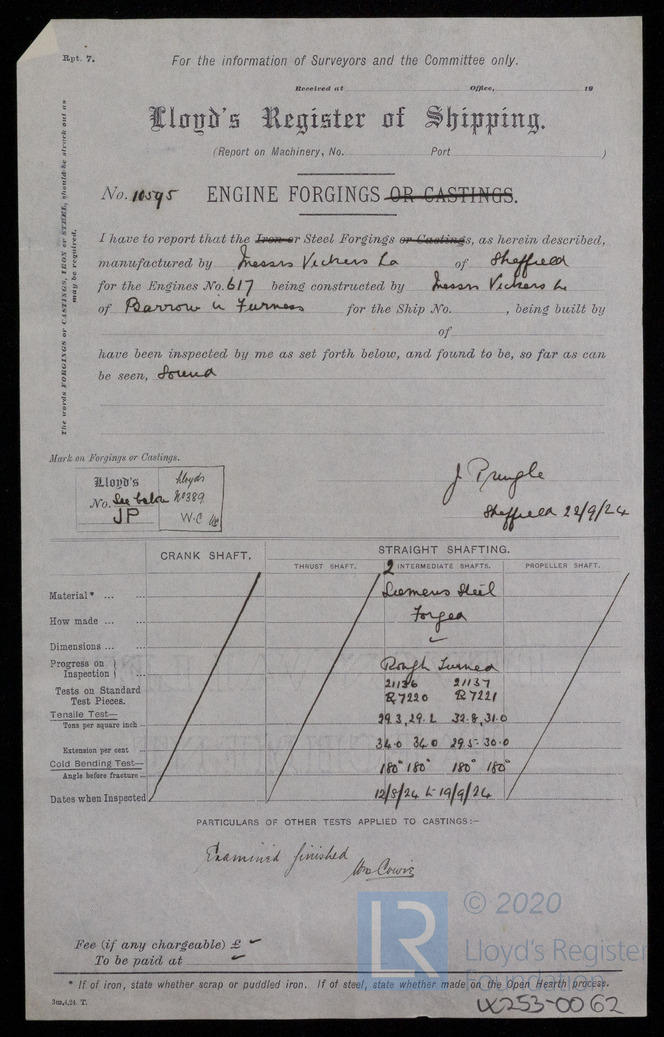 Rpt. 7.
For the information of Surveyors and the Committee only.
Received at Office, 19
Lloyd's Register of Shipping.
(Report on Machinery, No. Port )
No. 10595 ENGINE FORGINGS OR CASTINGS.
I have to report that the Iron or Steel Forgings or Castings, as herein described,
manufactured by Messrs Vickers Ld of Sheffield
for the Engines No. 617 being constructed by Messrs Vickers Ld
of Barrow in Furness for the Ship No. , being built by
of
have been inspected by me as set forth below, and found to be, so far as can
be seen, Sound
The words FORGINGS or CASTINGS, IRON or STEEL, should be struck out as
may be required.
Mark on Forgings or Castings.
Lloyd's
No. See below
JP
Lloyds
No 389
W.C
J Pringle
Sheffield 22/9/24
CRANK SHAFT. STRAIGHT SHAFTING.
THRUST SHAFT. 2 INTERMEDIATE SHAFTS. PROPELLER SHAFT.
Material* ... ... Siemens Steel
How made ... ... Forged
Dimensions ... ... ✓
Progress on Inspection } ... Rough Turned
Tests on Standard Test Pieces. 21136 21137
R7220 R7221
Tensile Test—
Tons per square inch ... 29.3, 29.2 32.8, 31.0
Extension per cent ... 34.0 34.0 29.5 - 30.0
Cold Bending Test—
Angle before fracture... 180° 180° 180° 180°
Dates when Inspected 12/8/24 to 19/9/24
PARTICULARS OF OTHER TESTS APPLIED TO CASTINGS:—
Examined finished
Wm Cowie
Fee (if any chargeable) £ ✓
To be paid at ✓
* If of iron, state whether scrap or puddled iron. If of steel, state whether made on the Open Hearth process.
3m,4,24. T.
LR
© 2020
Lloyd's Register
Foundation
W253-0062